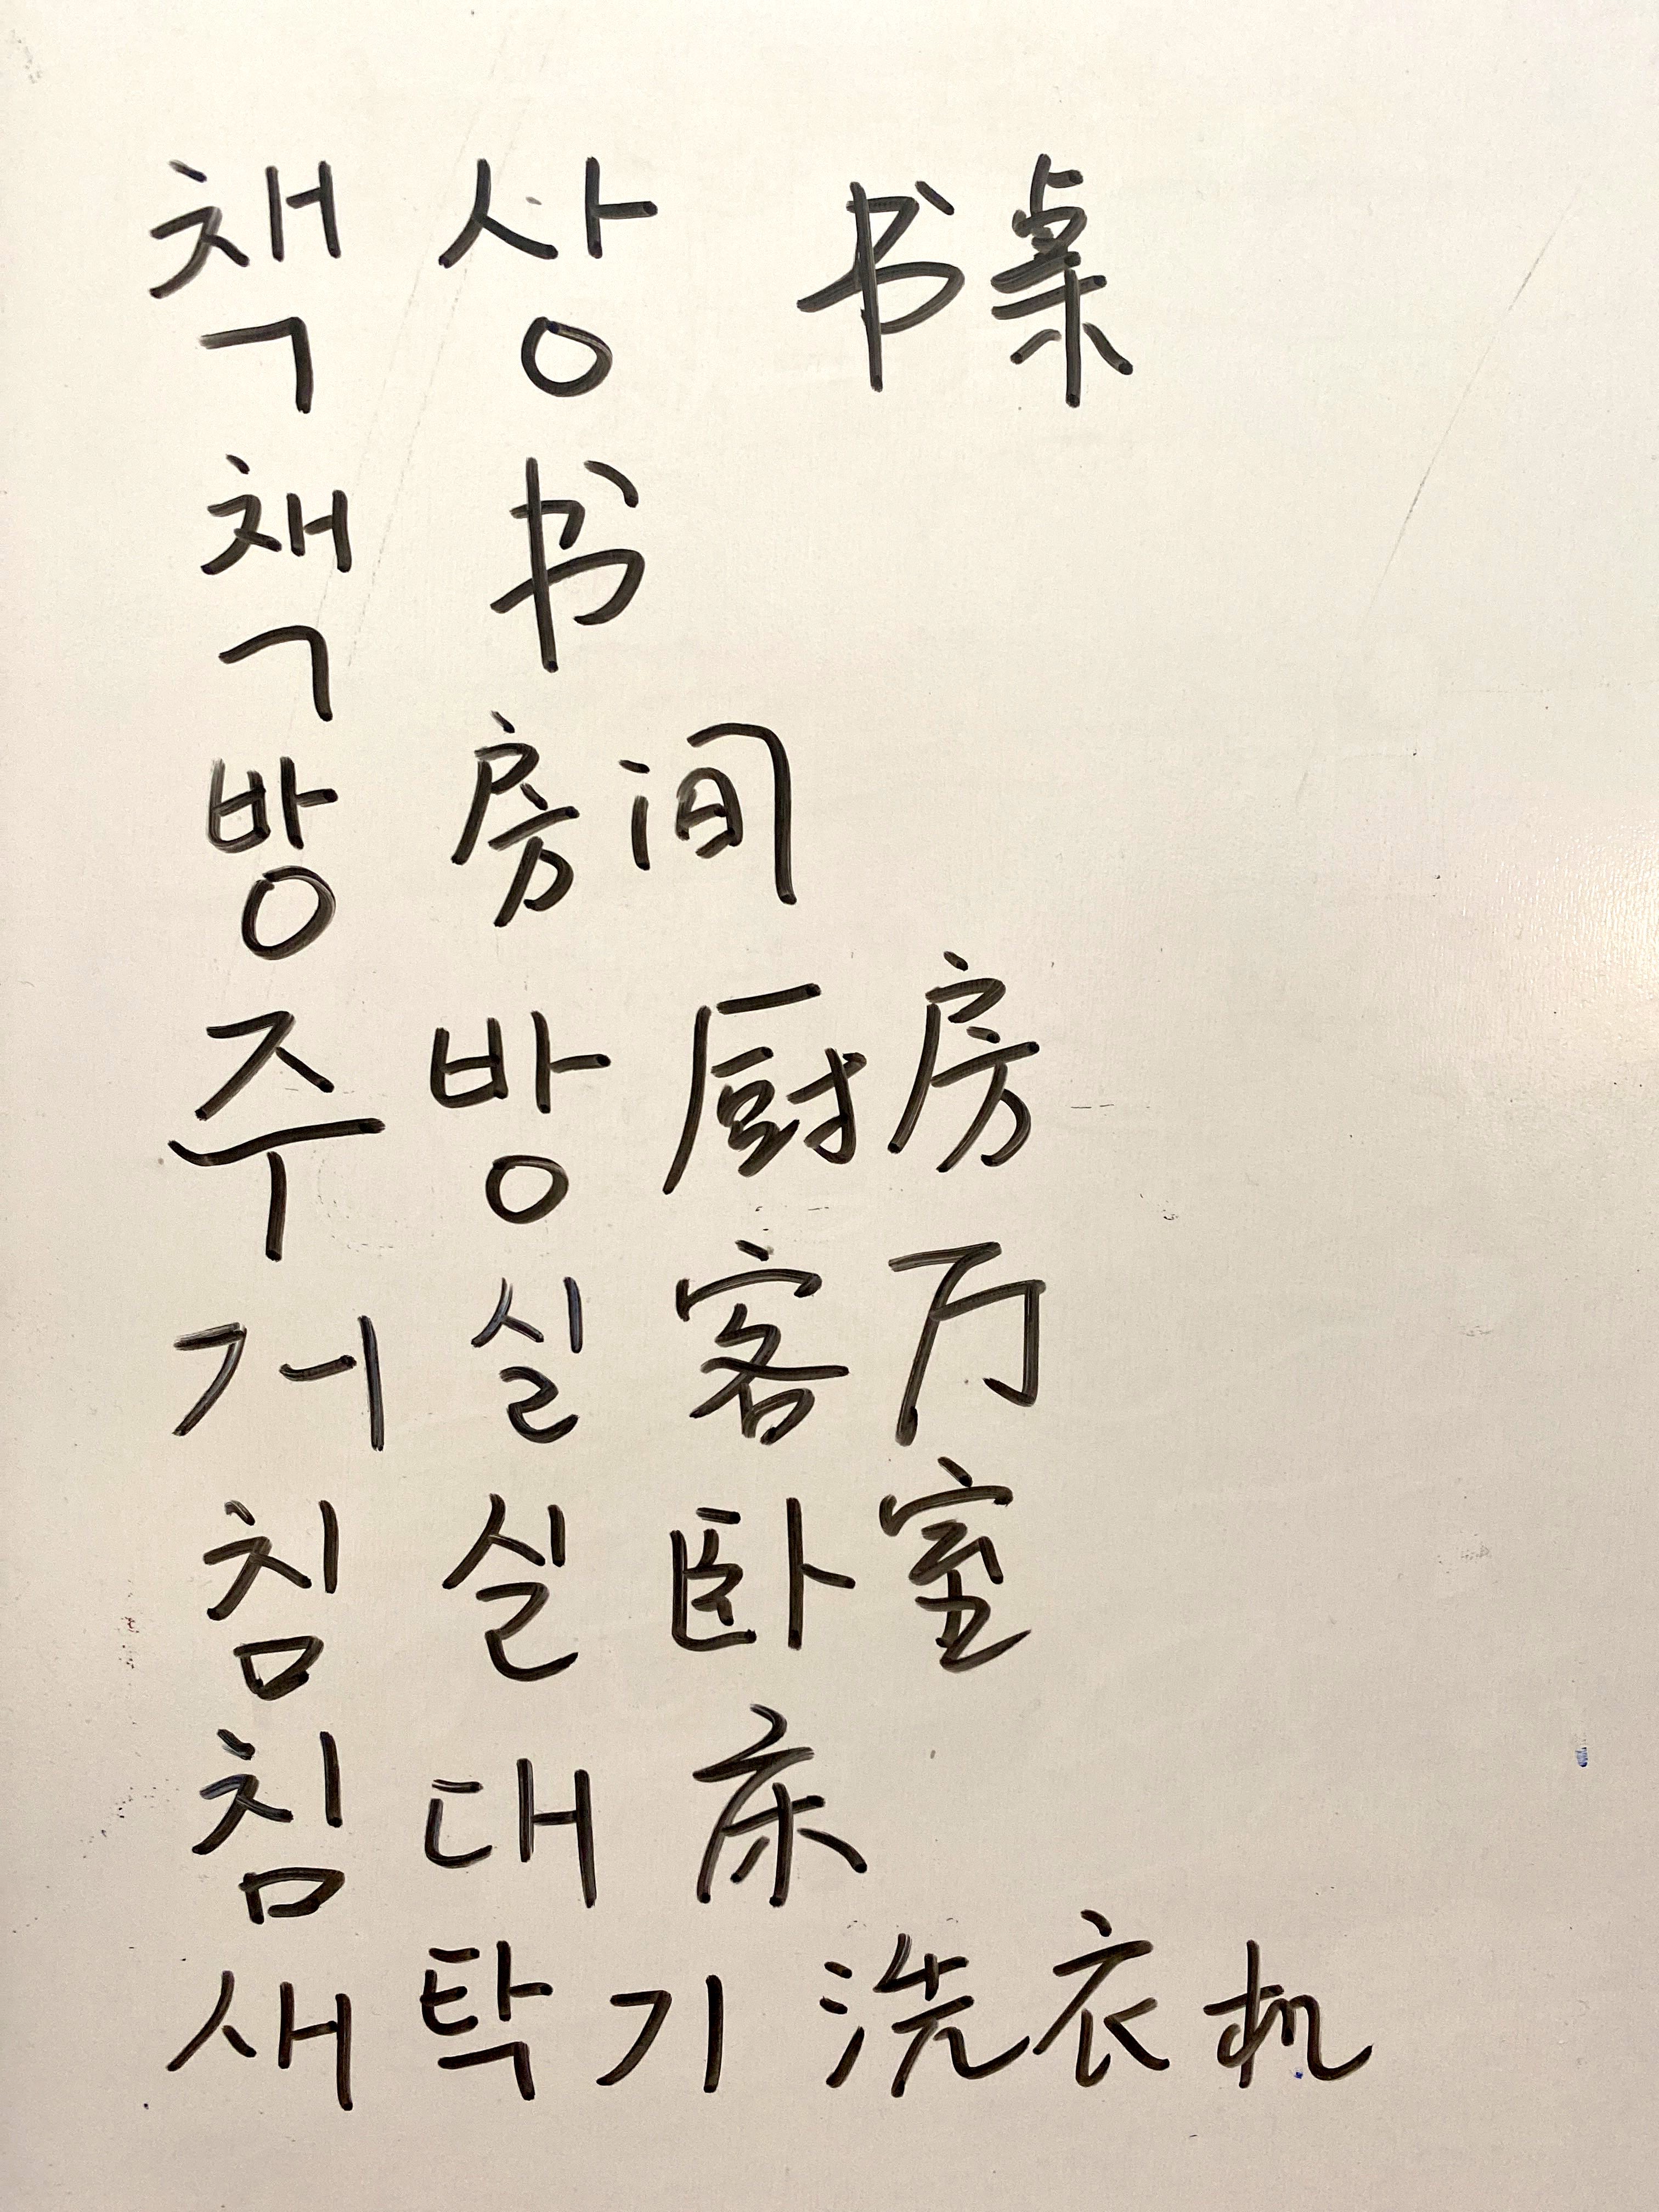 책상 书桌
책 书
방 房间
주방 厨房
거실 客厅
침실 卧室
침대 床
새탁기 洗衣机